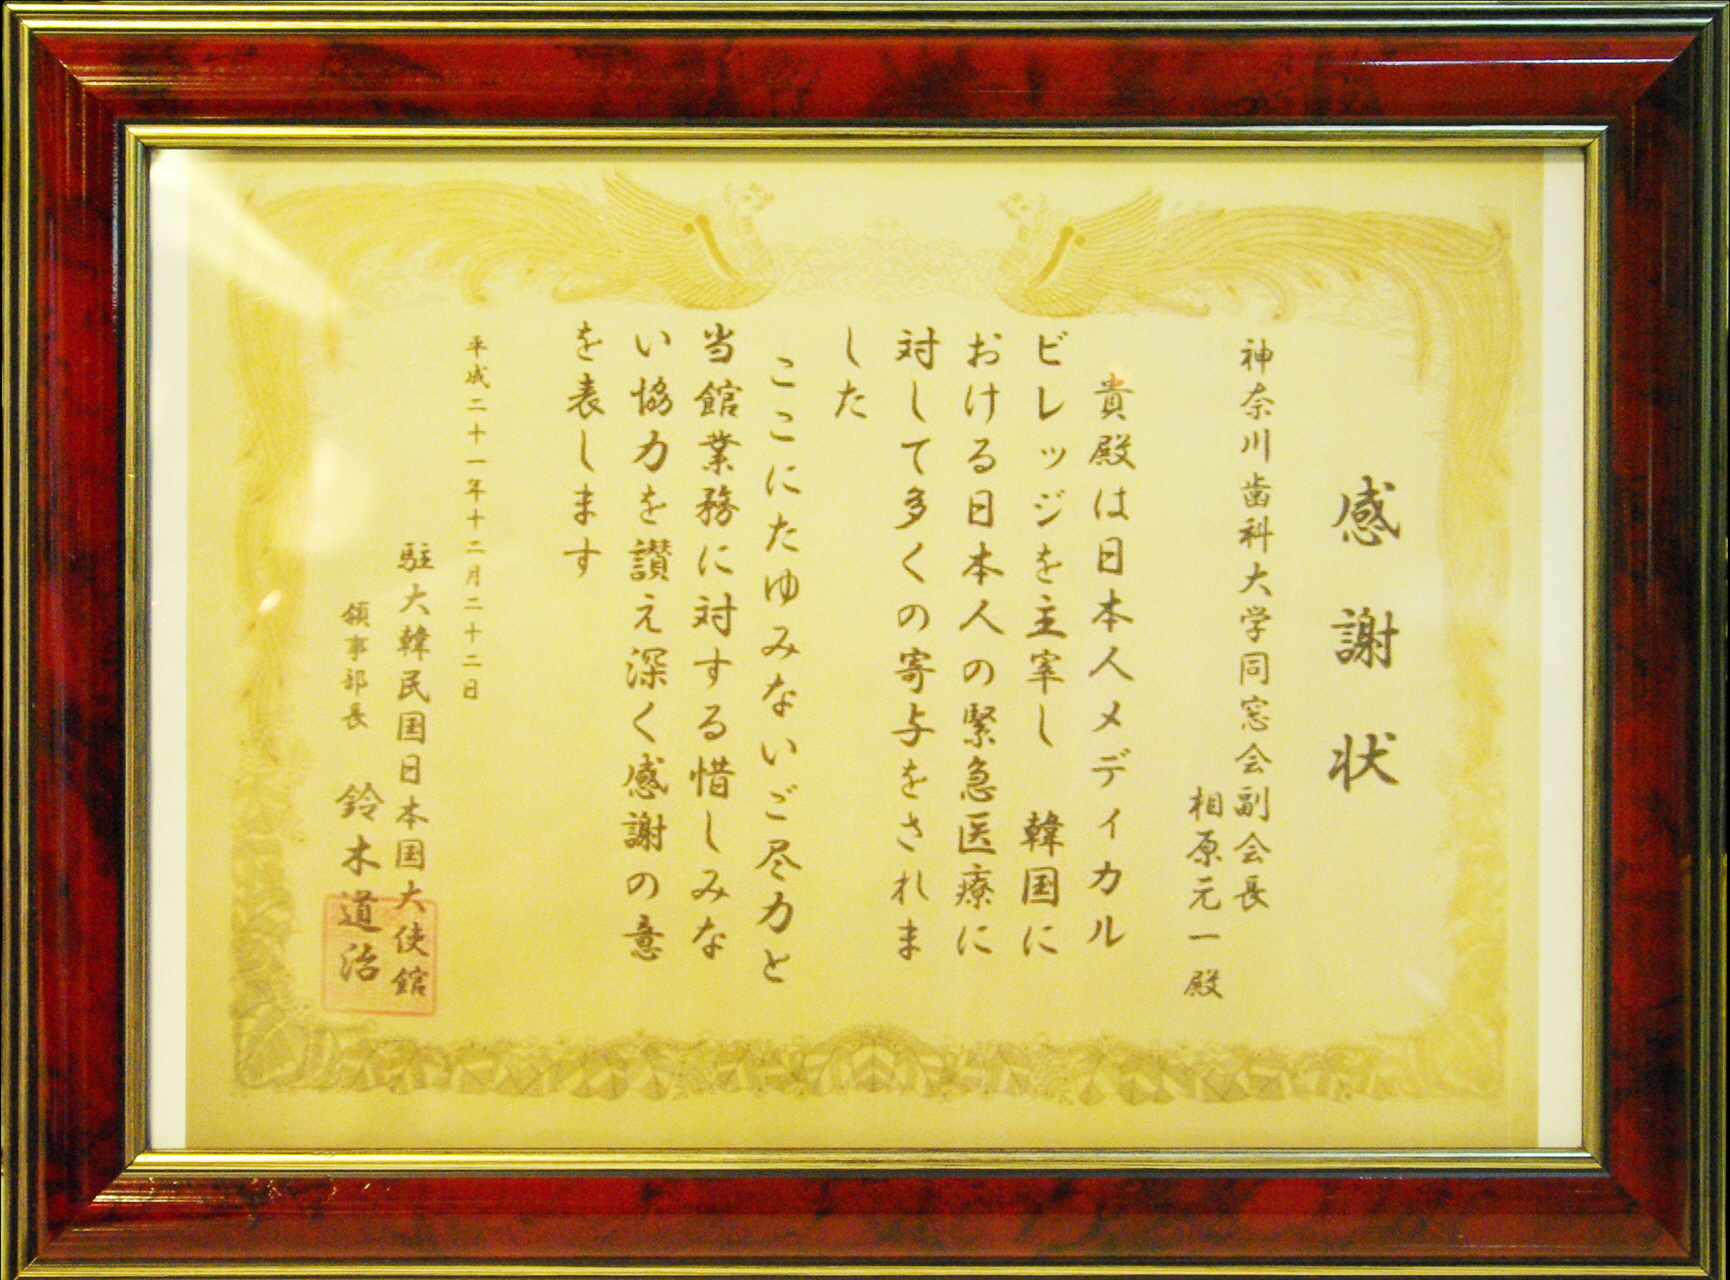 感謝状
神奈川歯科大学同窓会副会長
相原元一殿
貴殿は日本人メディカル
ビレッジを主宰し　韓国に
おける日本人の緊急医療に
対して多くの寄与をされま
した
ここにたゆみないご尽力と
当館業務に対する惜しみな
い協力を讃え深く感謝の意
を表します
平成二十一年十二月二十二日
駐大韓民国日本国大使館
領事部長　鈴木道治